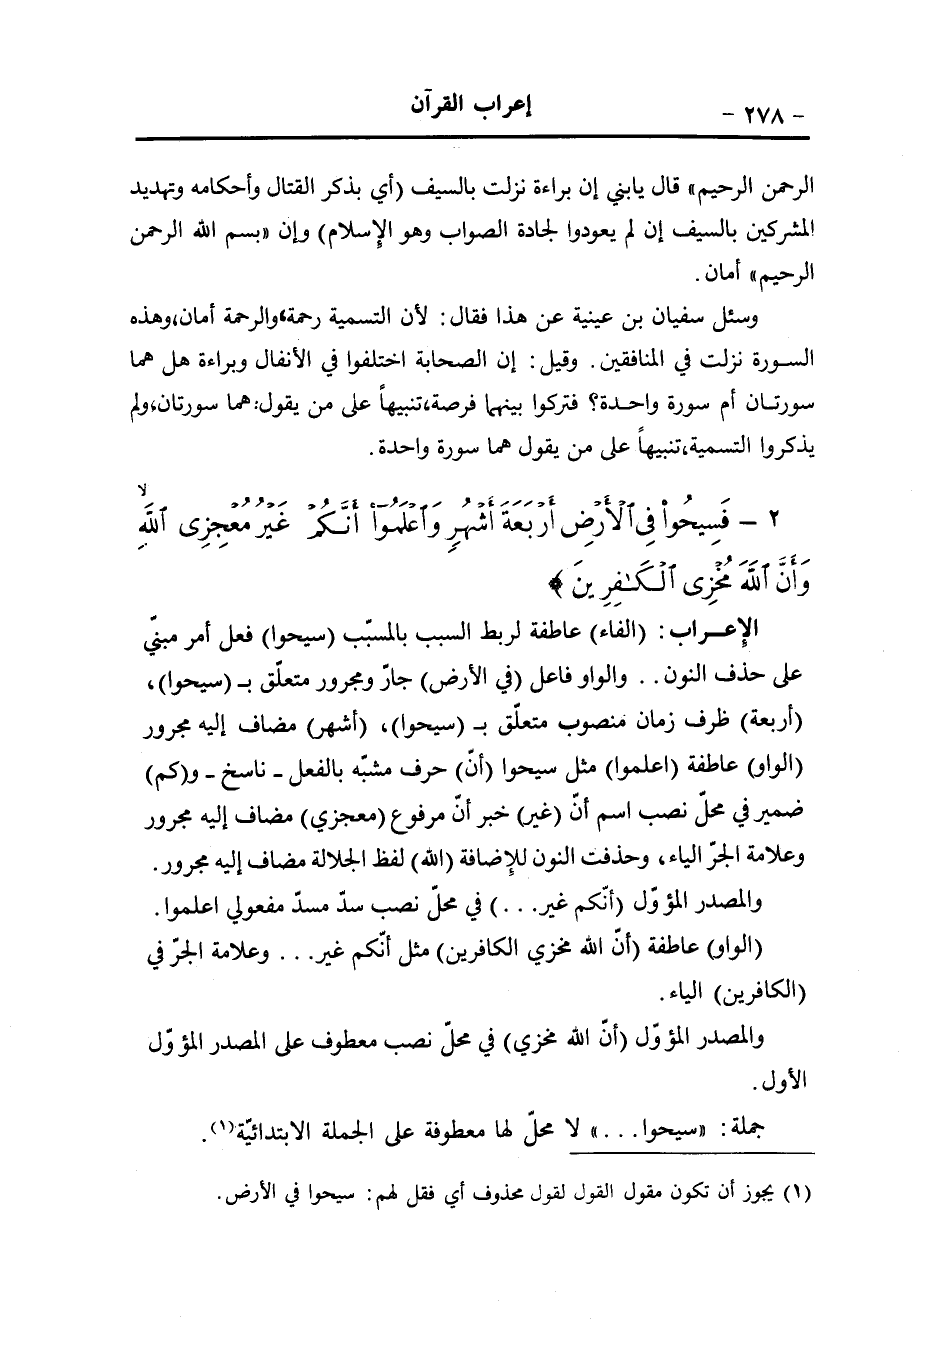 - ٢٧٨ -
إعراب القرآن
الرحمن الرحيم» قال يابني إن براءة نزلت بالسيف (أي بذكر القتال وأحكامه وتهديد
المشركين بالسيف إن لم يعودوا لجادة الصواب وهو الإسلام) وإن «بسم الله الرحمن
الرحيم» أمان.
وسئل سفيان بن عينية عن هذا فقال: لأن التسمية رحمة، والرحمة أمان، وهذه
السورة نزلت في المنافقين. وقيل: إن الصحابة اختلفوا في الأنفال وبراءة هل هما
سورتان أم سورة واحدة؟ فتركوا بينهما فرصة، تنبيهاً على من يقول: هما سورتان، ولم
يذكروا التسمية، تنبيهاً على من يقول هما سورة واحدة.
٢ - فَسِيحُوا۟ فِى ٱلْأَرْضِ أَرْبَعَةَ أَشْهُرٍ وَٱعْلَمُوٓا۟ أَنَّكُمْ غَيْرُ مُعْجِزِى ٱللَّهِ ۙ
وَأَنَّ ٱللَّهَ مُخْزِى ٱلْكَـٰفِرِينَ ﴾
الإعراب: (الفاء) عاطفة لربط السبب بالمسبّب (سيحوا) فعل أمر مبنّي
على حذف النون.. والواو فاعل (في الأرض) جارّ ومجرور متعلّق بـ (سيحوا)،
(أربعة) ظرف زمان منصوب متعلّق بـ (سيحوا)، (أشهر) مضاف إليه مجرور
(الواو) عاطفة (اعلموا) مثل سيحوا (أنّ) حرف مشبّه بالفعل - ناسخ - و(كم)
ضمير في محلّ نصب اسم أنّ (غير) خبر أنّ مرفوع (معجزي) مضاف إليه مجرور
وعلامة الجرّ الياء، وحذفت النون للإضافة (الله) لفظ الجلالة مضاف إليه مجرور.
والمصدر المؤوّل (أنّكم غير...) في محلّ نصب سدّ مسدّ مفعولي اعلموا.
(الواو) عاطفة (أنّ الله مخزي الكافرين) مثل أنّكم غير... وعلامة الجرّ في
(الكافرين) الياء.
والمصدر المؤوّل (أنّ الله مخزي) في محلّ نصب معطوف على المصدر المؤوّل
الأول.
جملة: «سيحوا...» لا محلّ لها معطوفة على الجملة الابتدائيّة(١).
(١) يجوز أن تكون مقول القول لقول محذوف أي فقل لهم: سيحوا في الأرض.